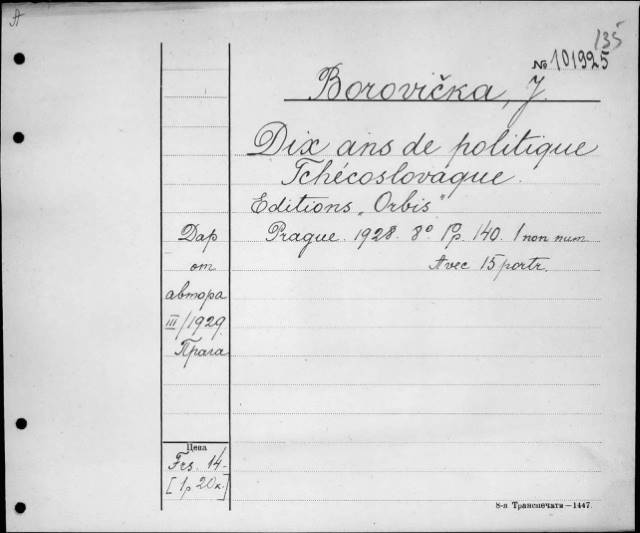 A
135
№ 101925
Borovička, J.
Dix ans de politique
Tchécoslovaque.
Editions „Orbis"
Prague. 1928. 8° Pp. 140. 1 non num.
Avec 15 portr.
Дар
от
автора
III/1929
Прага
Цена
Frs. 14-
[1 р 20 к.]
8-я Транспечати—1447.